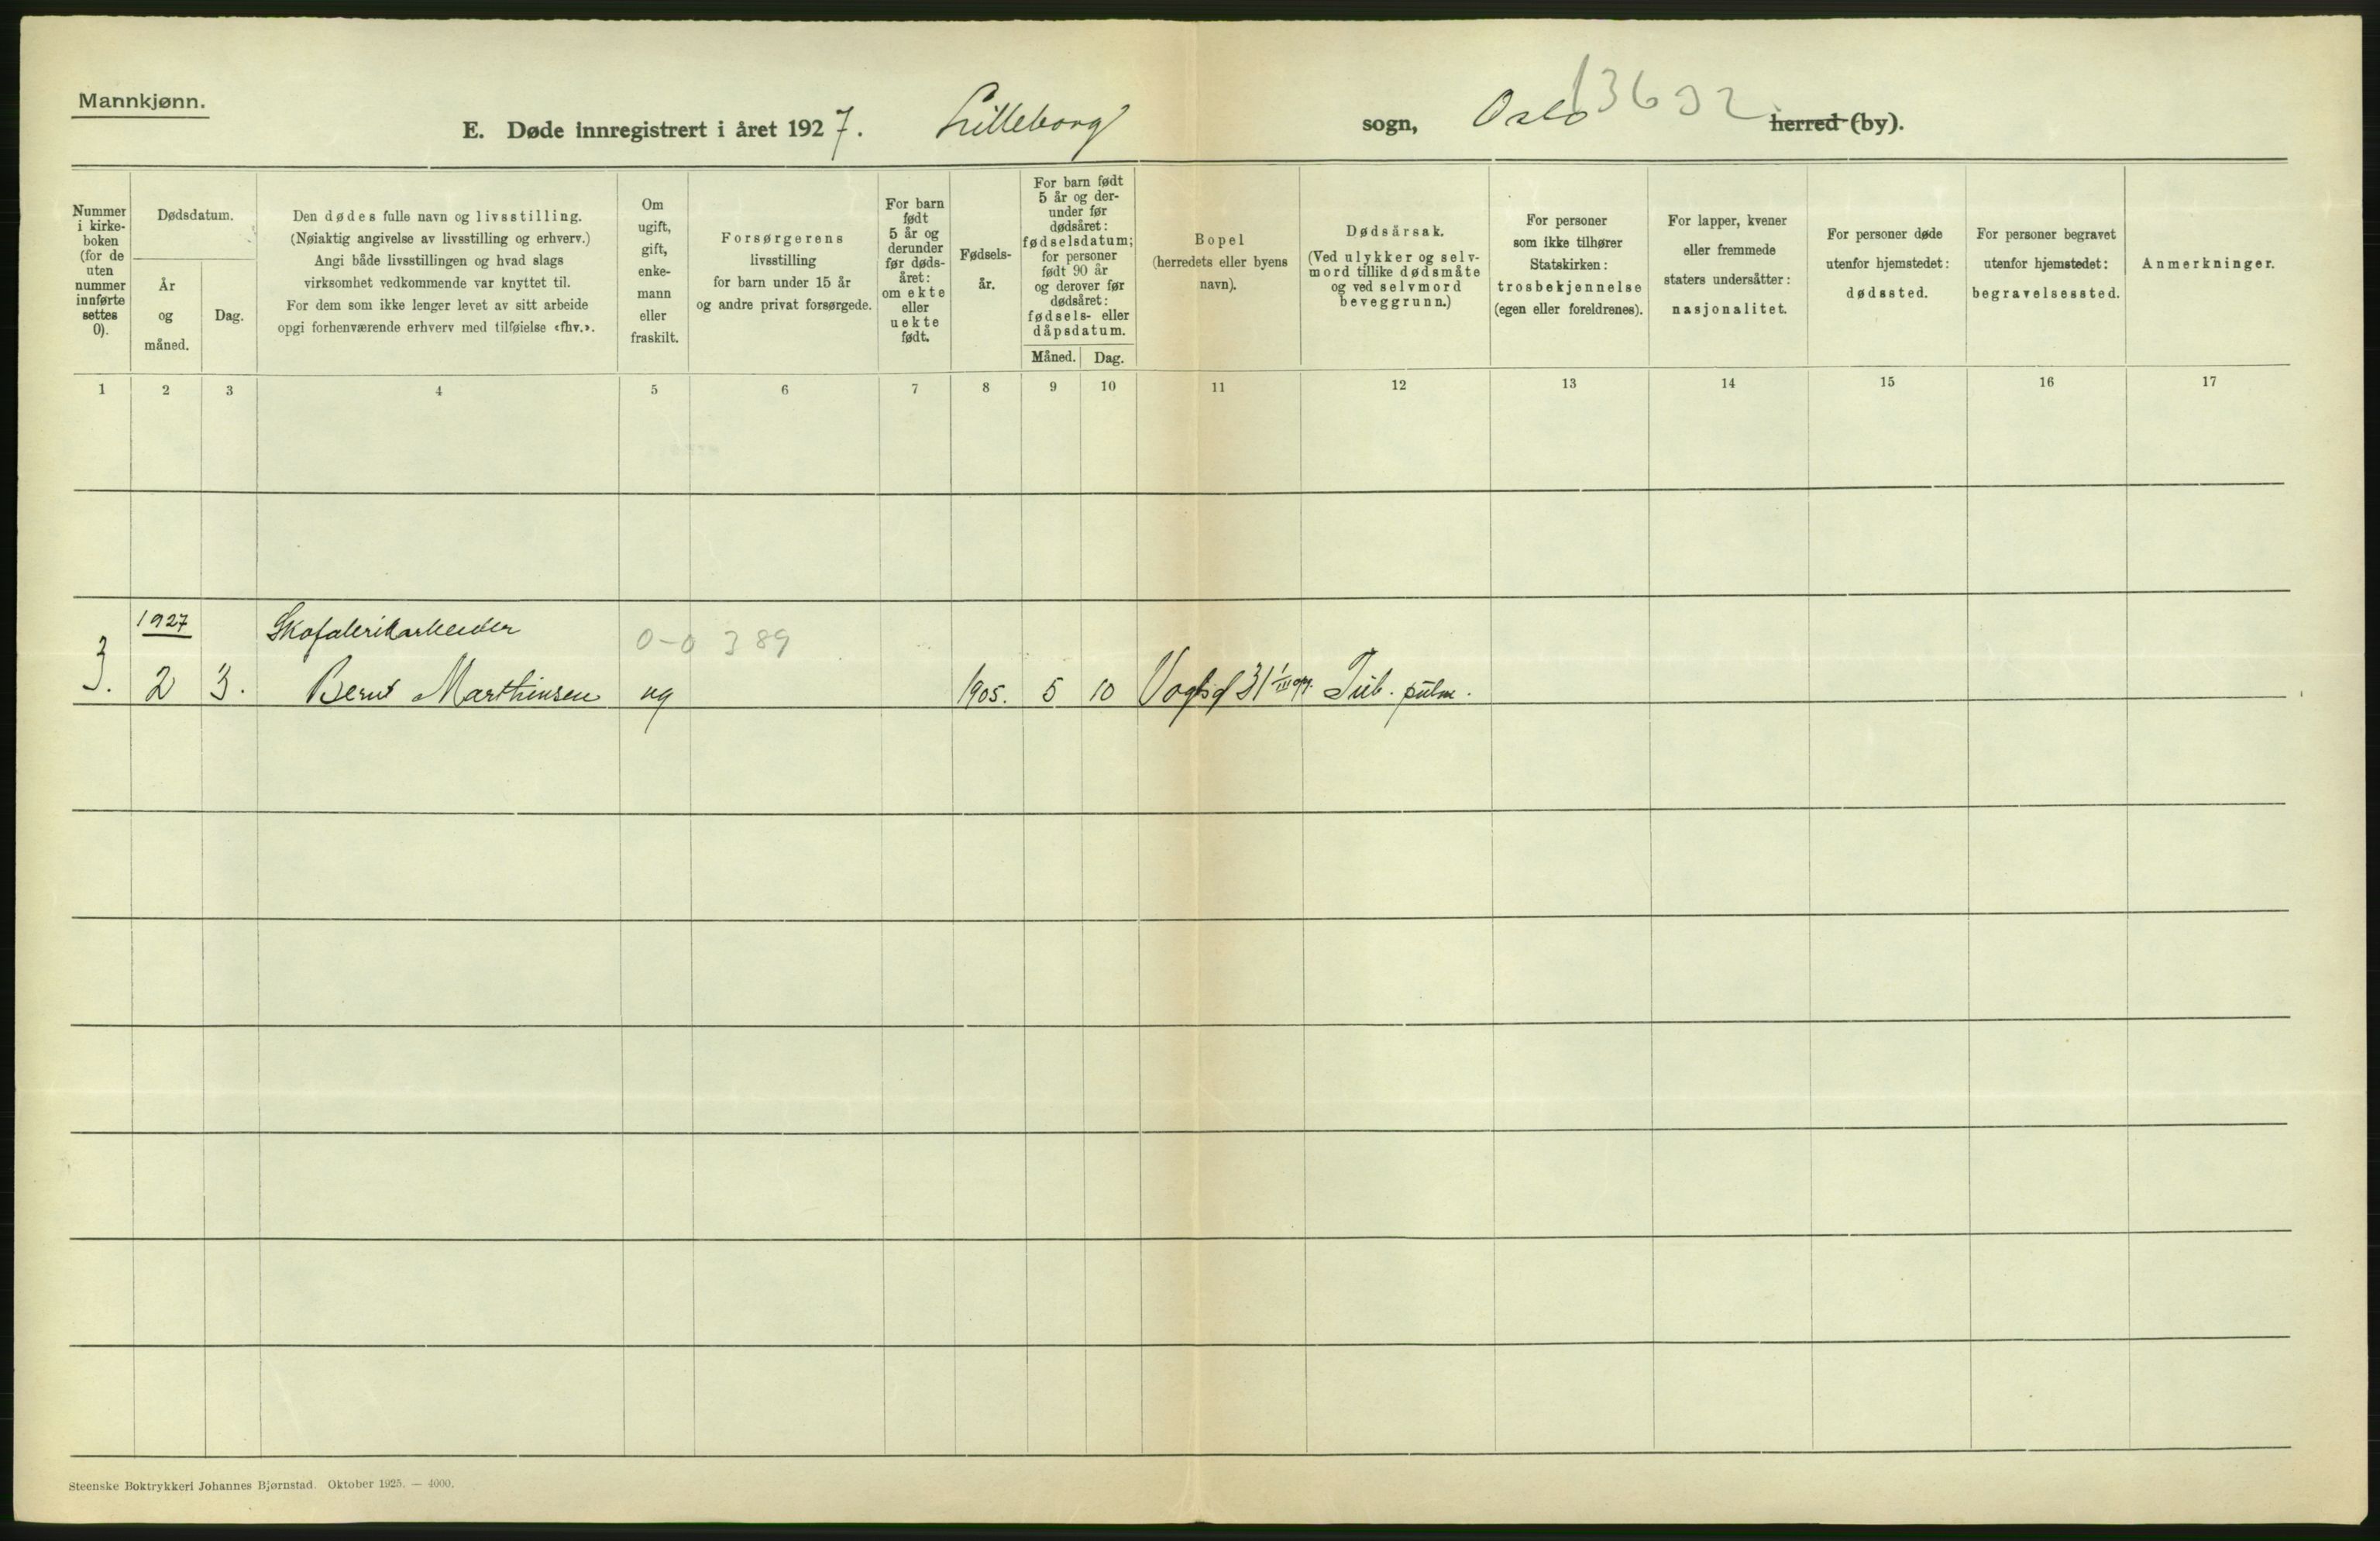 Mannkjønn.
E. Døde innregistrert i året 1927. Lilleborg sogn, Oslo herred (by).
Nummer i kirke- boken (for de uten nummer innførte settes 0).
Dødsdatum.
År og måned.
Dag.
Den dødes fulle navn og livsstilling.
(Nøiaktig angivelse av livsstilling og erhverv.)
Angi både livsstillingen og hvad slags
virksomhet vedkommende var knyttet til.
For dem som ikke lenger levet av sitt arbeide
opgi forhenværende erhverv med tilføielse «fhv.».
Om ugift, gift, enke- mann eller fraskilt.
Forsørgerens
livsstilling
for barn under 15 år
og andre privat forsørgede.
For barn født 5 år og derunder før døds- året: om ekte eller uekte født.
Fødsels- år.
For barn født 5 år og der- under før dødsåret: fødselsdatum; for personer født 90 år og derover før dødsåret: fødsels- eller dåpsdatum.
Måned. Dag.
Bopel
(herredets eller byens
navn).
Dødsårsak.
(Ved ulykker og selv-
mord tillike dødsmåte
og ved selvmord
beveggrunn.)
For personer
som ikke tilhører
Statskirken:
trosbekjennelse
(egen eller foreldrenes).
For lapper, kvener
eller fremmede
staters undersåtter:
nasjonalitet.
For personer døde
utenfor hjemstedet:
dødssted.
For personer begravet
utenfor hjemstedet:
begravelsessted.
Anmerkninger.
1 2 3 4 5 6 7 8 9 10 11 12 13 14 15 16 17
1927 Skofabrikarbeider 0-0 389
3. 2 3. Bernt Marthinsen ug 1905. 5 10 31 Tub. pulm.
Steenske Boktrykkeri Johannes Bjørnstad. Oktober 1925. — 4000.